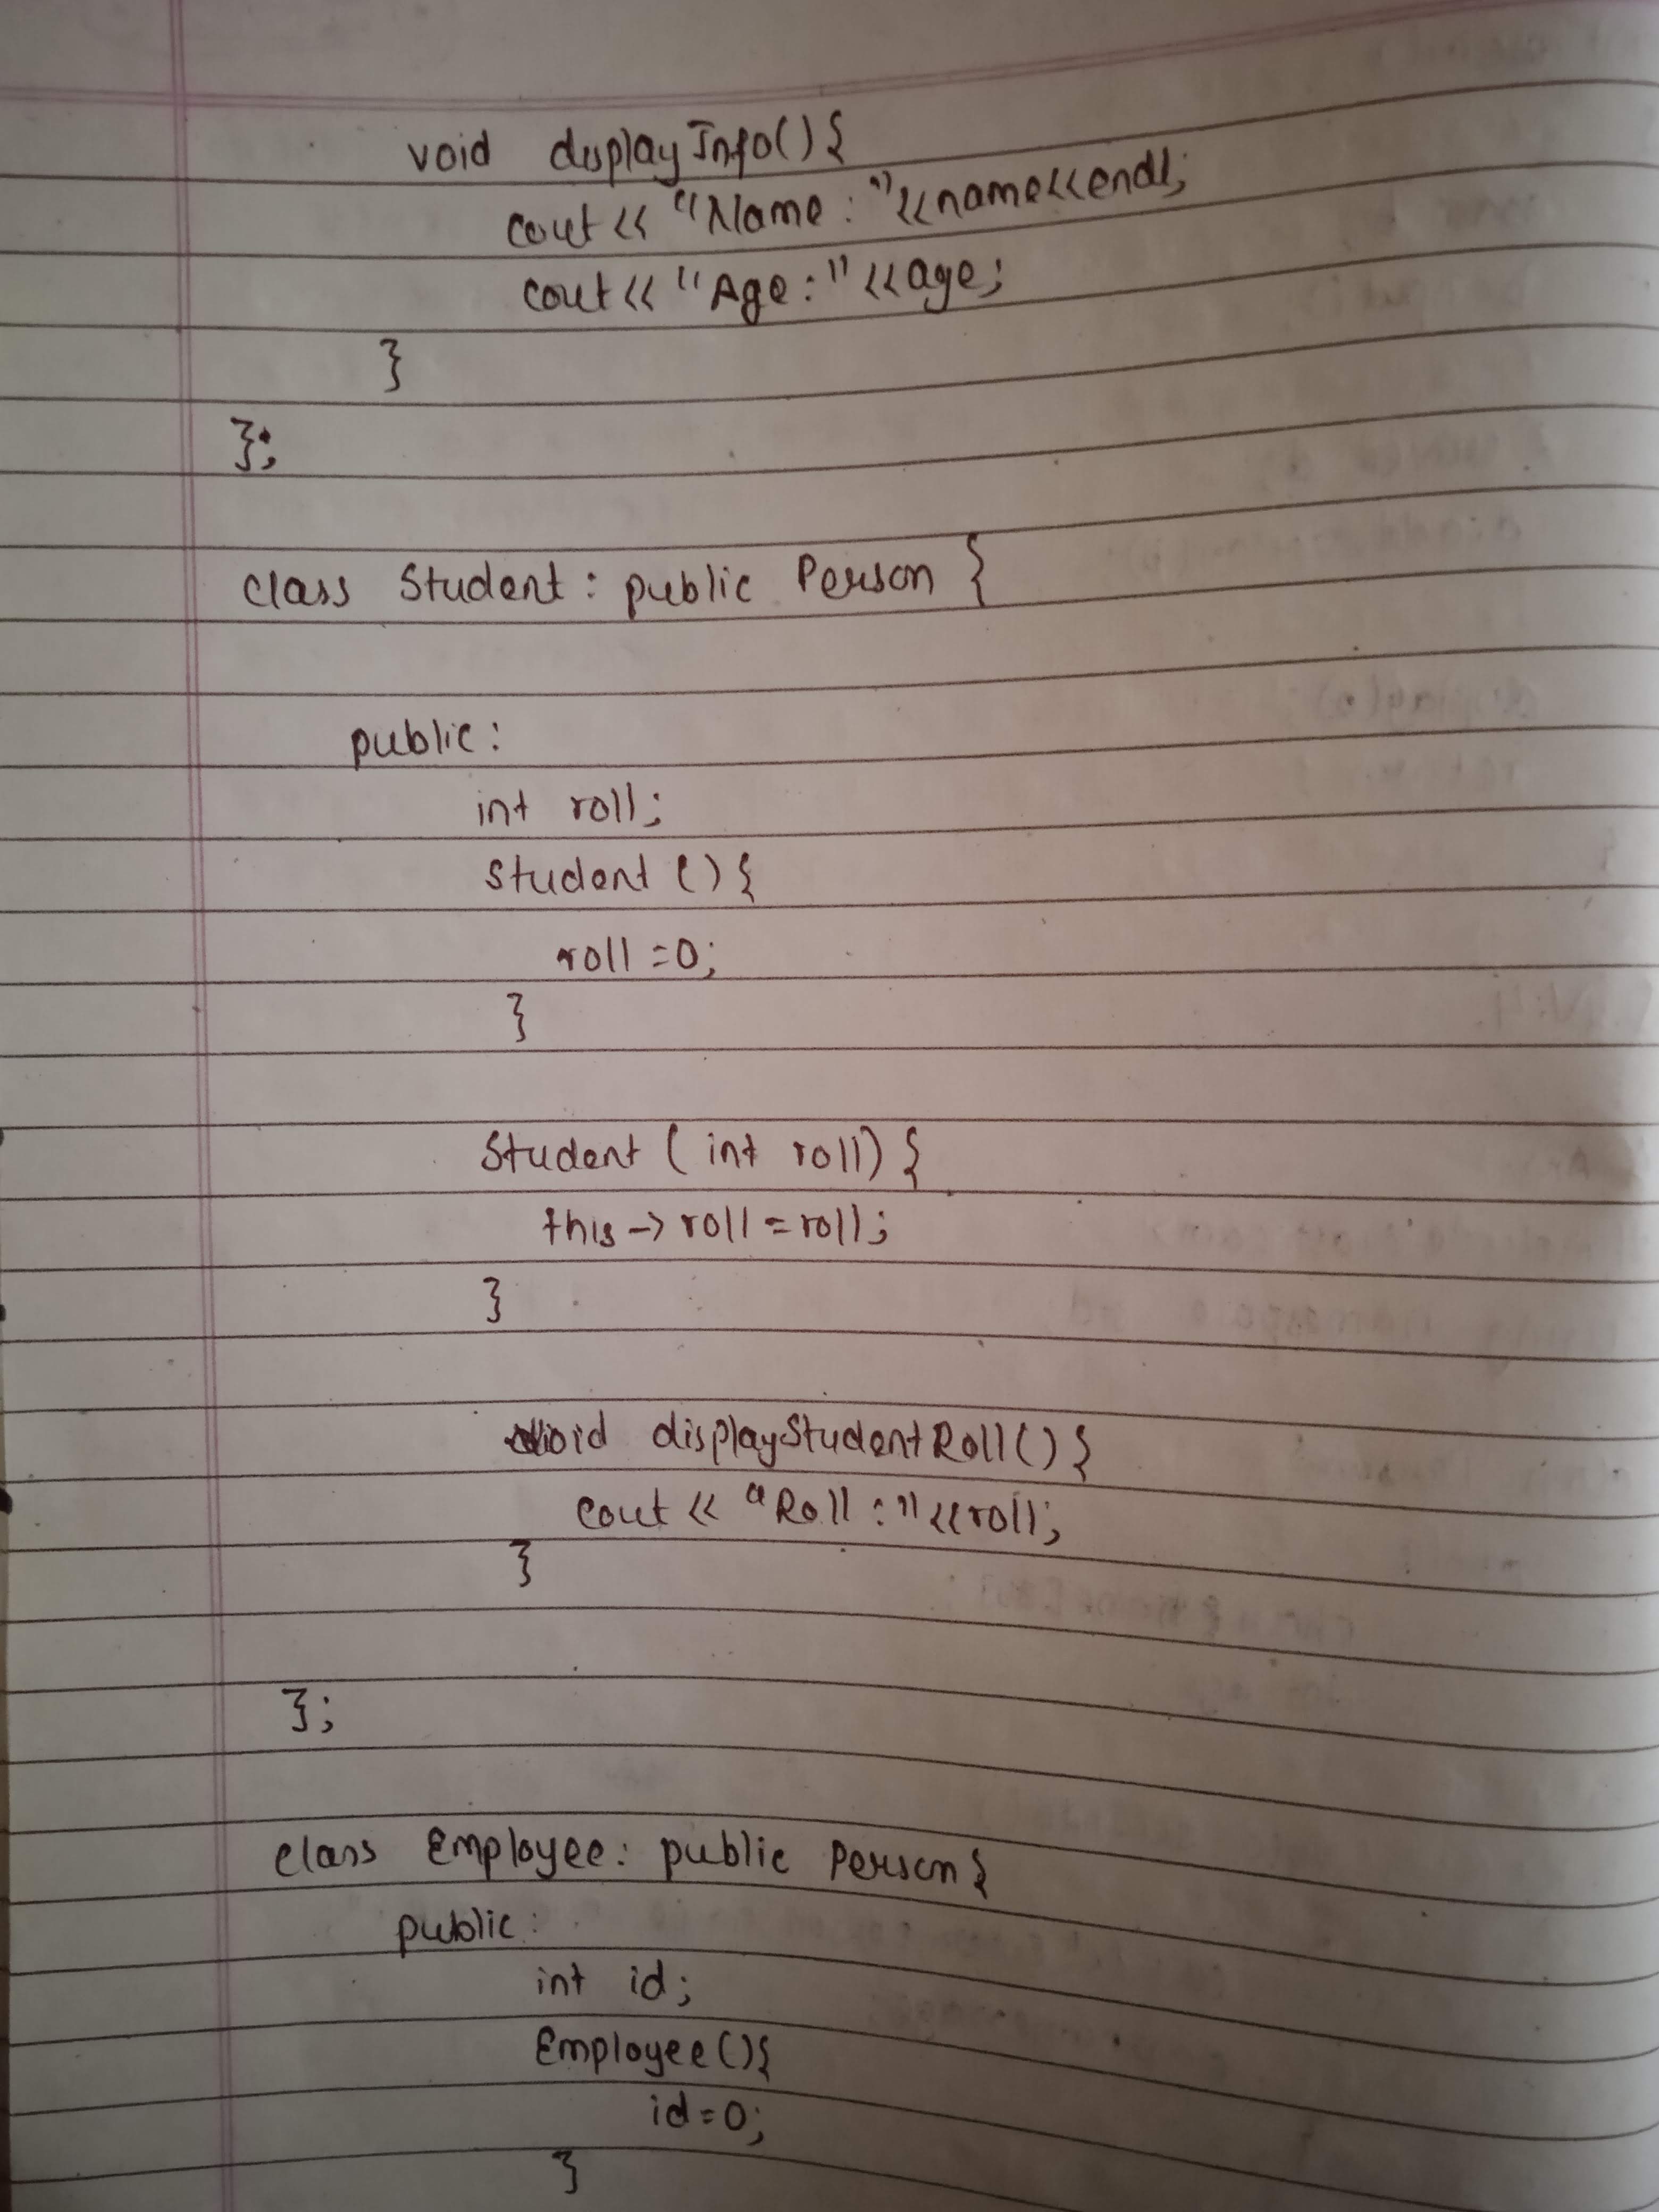 void displayInfo(){
cout<< "Name : "<<name<<endl;
cout<< "Age : " <<age;
}
};
class Student : public Person {
public :
int roll;
Student () {
roll = 0;
}
Student ( int roll) {
this -> roll = roll;
}
void displayStudentRoll() {
cout << "Roll : " <<roll;
}
};
class Employee : public Person {
public :
int id;
Employee () {
id = 0;
}